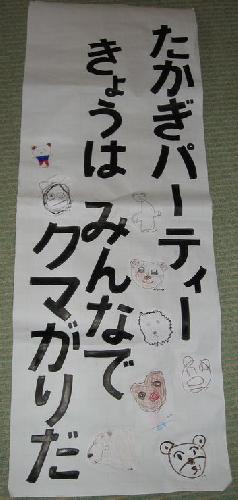 たかぎパーティー
きょうは みんなで
クマがりだ